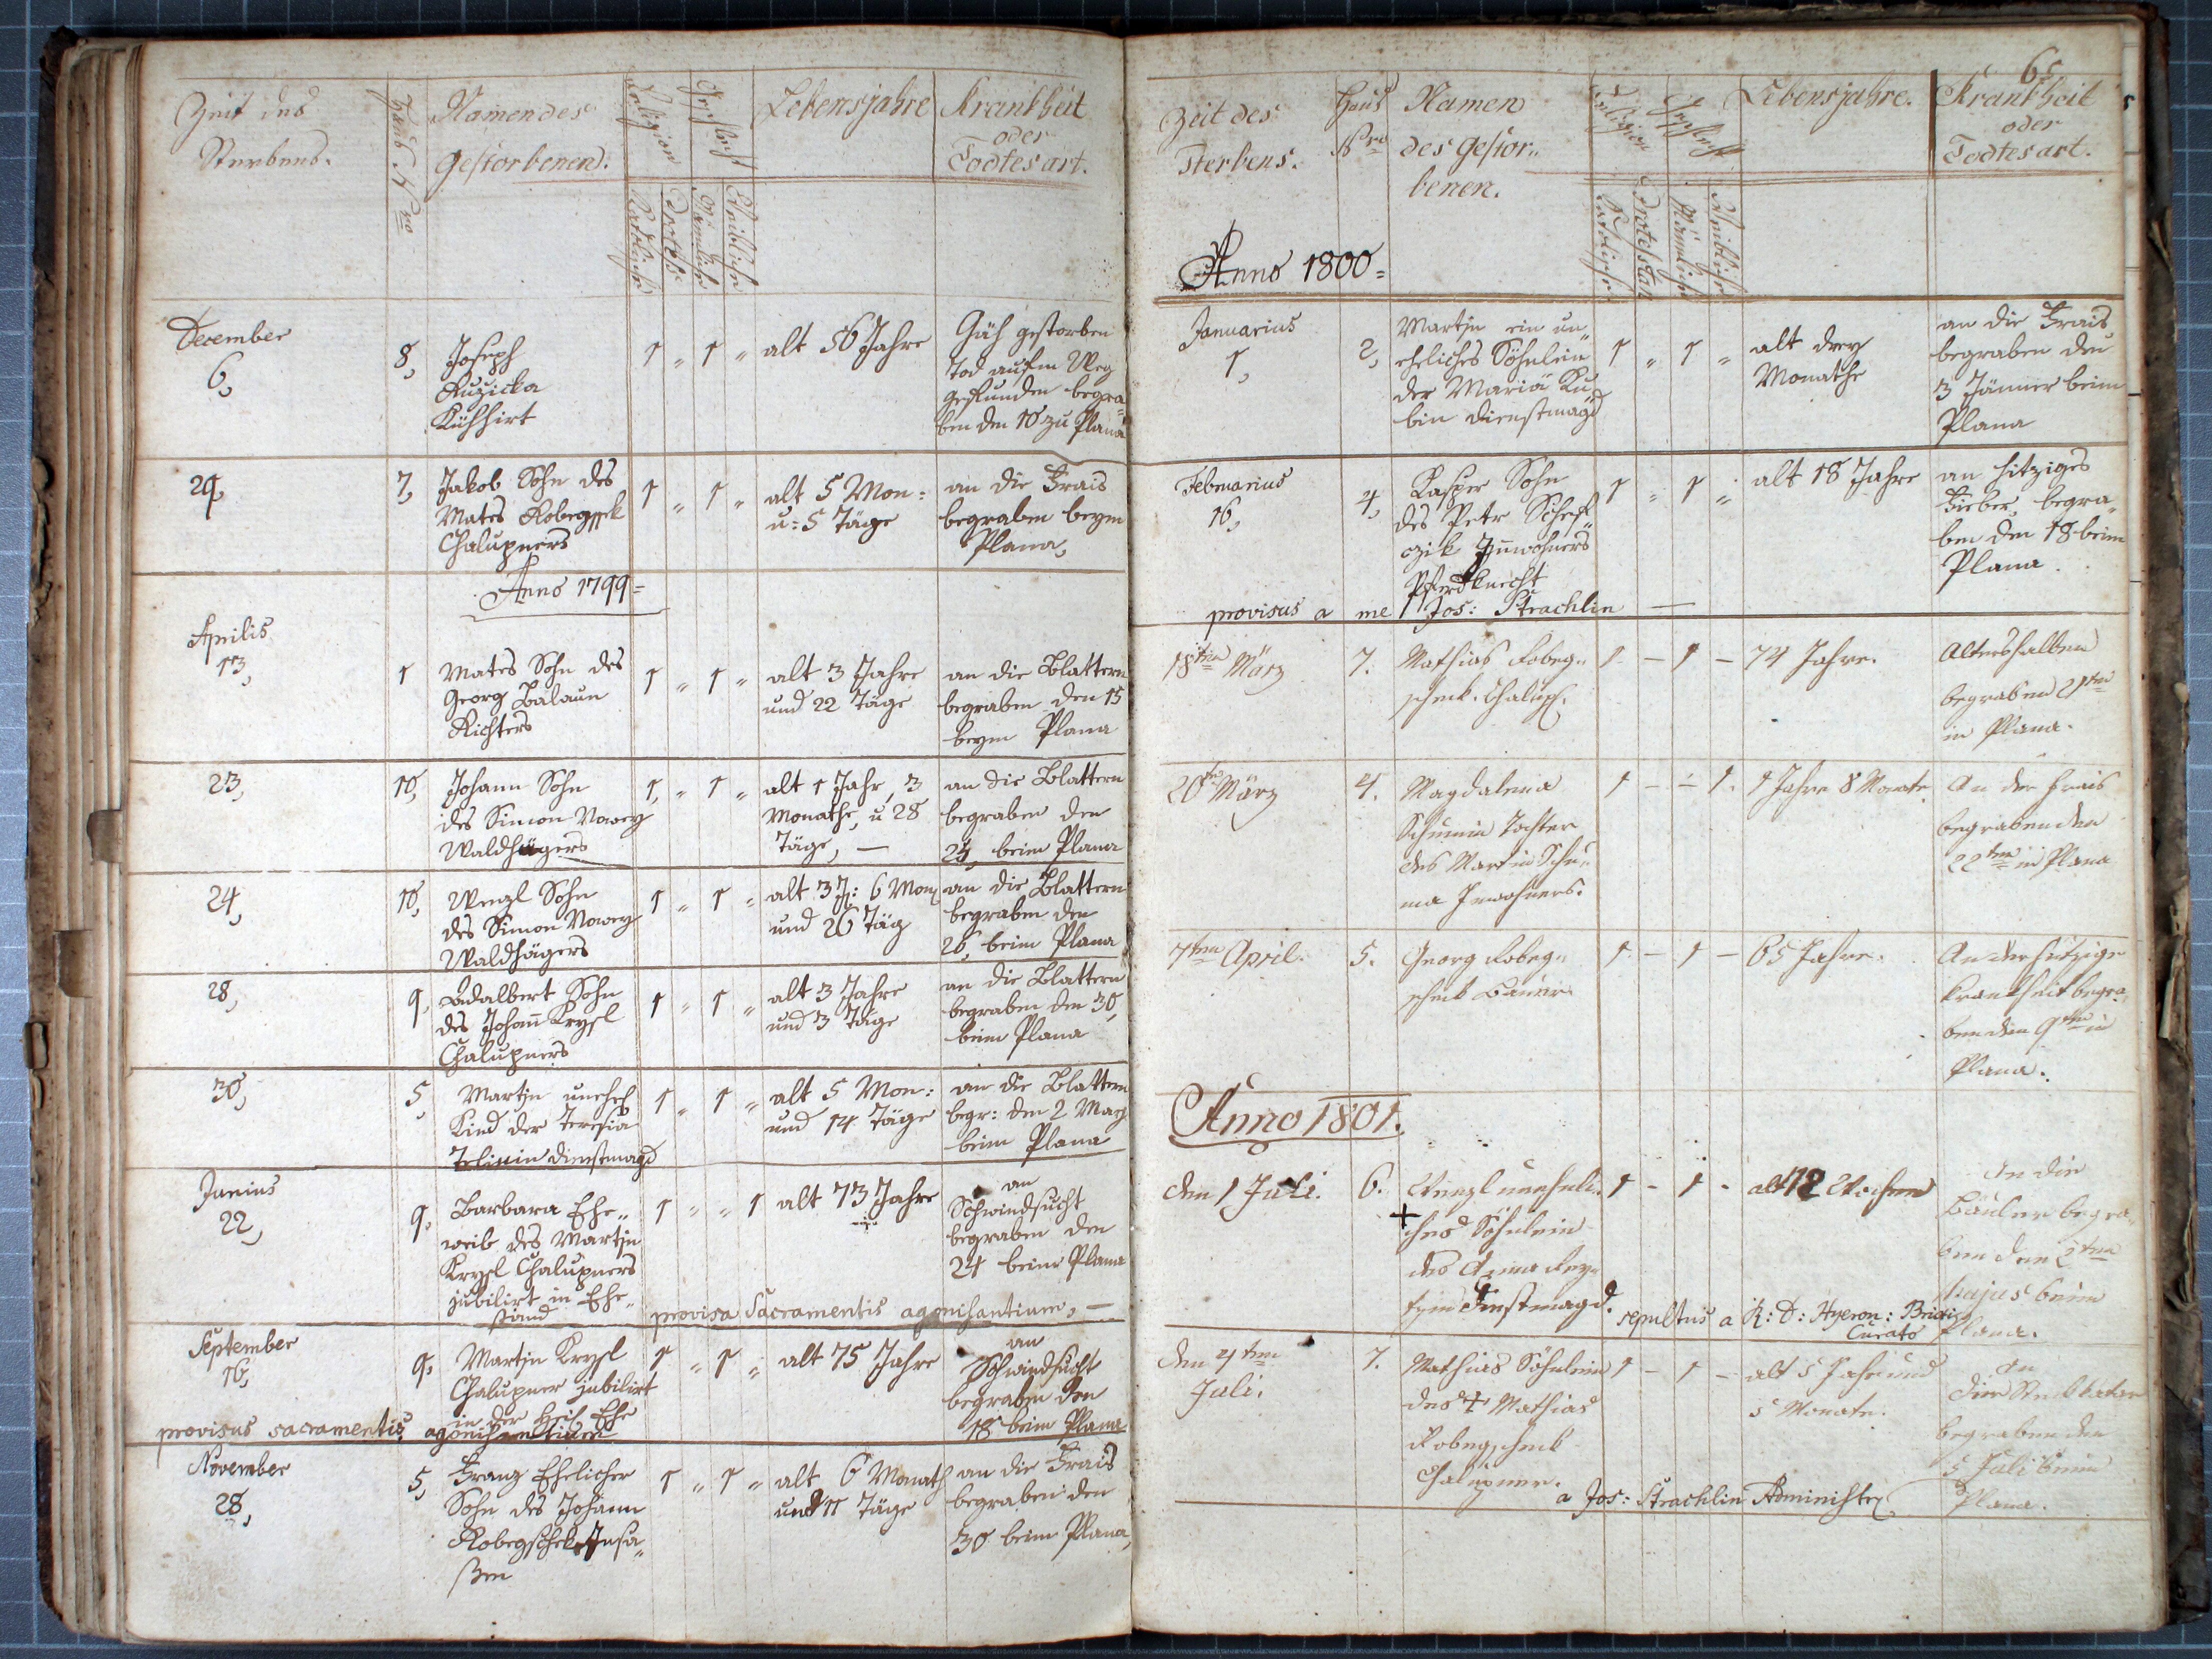 Zeit des
Sterbens.
Haus Nro
Namen des
gestorbenen.
Religion
Katolische
Protest:
Geschlecht
Männliche
Weibliche
Lebensjahre
Krankheit
oder
Todtesart.
December
6,
8,
Joseph
Ruzicka
Kühhirt
1 " 1 "
alt 56 Jahre
Gäh gestorben
Tod aufm Weg
gefunden begra=
ben den 10 zu Plana
29,
7,
Jakob Sohn des
Mates
Chalupners
1 " 1 "
alt 5 Mon:
u: 5 Täge
an die Frais
begraben beym
Plana,
Anno 1799=
Aprilis
13,
1
Mates Sohn des
Georg Balaun
Richters
1 " 1 "
alt 3 Jahre
und 22 Täge
an die Blattern
begraben den 15
beym Plana
23,
10,
Johann Sohn
des Simon Nowey
Waldhägers
1, " 1 "
alt 1 Jahr, 3
Monathe, u 28
Täge, —
an die Blattern
begraben den
beim Plana
24,
10,
Wenzl Sohn
des Simon Nowey
Waldhägers
1 " 1 "
alt 3 J: 6 Mon
und 26 Täg
an die Blattern
begraben den
26, beim Plana
28,
9,
Adalbert Sohn
des Johann Krysl
Chalupners
1 " 1 "
alt 3 Jahre
und 3 Täge
an die Blattern
begraben den 30,
beim Plana
30,
5,
Martin unehel
Kind der Teresia
dienstmagd
1 " 1 "
alt 5 Mon:
und 14 Täge
an die Blattern
begr: den 2 May
beim Plana
Junius
22,
9,
Barbara Ehe„
weib des Martin
Krysl Chalupners
jubilirt in Ehe„
stand
1 " " 1
alt 73 Jahre
an
Schwindsucht
begraben den
24 beim Plana
provisa Sacramentis agonisantium, —
September
16,
9,
Martin Krysl
Chalupner jubilirt
in der heil Ehe
1 " 1 "
alt 75 Jahre
an
Schwindsucht
begraben den
18 beim Plana
provisus sacramentis agonisantium
November
28,
5,
Franz Ehelicher
Sohn des Johann
Robegschek Insa„
ßen
1 " 1 "
alt 6 Monath
und 11 Täge
an die Frais
begraben den
30 beim Plana,
Zeit des
Sterbens.
Haus
Nro
Namen
des gestor„
benen.
Religion
Katolische
Protestan
Geschlecht
Männliche
Weibliche
Lebensjahre.
Krankheit
oder
Todtesart.
Anno 1800=
Januarius
1,
2,
Martin ein un„
eheliches Söhnlein
der Maria Ku„
bin Dienstmagd
1 " 1 "
alt drey
Monathe
an die Frais,
begraben den
3 Jänner beim
Plana
Februarius
16,
4,
Kasper Sohn
des Petr Schef„
czik Innwohners
Pferdknecht
1 " 1 "
alt 18 Jahre
an hitziges
Fieber, begra„
ben den 18 beim
Plana.
provisus a me Jos: Strachlin —
18ten März
7.
Mathias Robeg„
schek. Chalup.
1 – 1 –
74 Jahre.
Altershalben
begraben 21ten
in Plana.
20ten März
4.
Magdalena
Schumin Tochter
des Martin Schu„
ma Inwohners.
1 – – 1.
1 Jahre 8 Monate
An der Frais
begraben den
22ten in Plana
7ten April.
5.
Georg Robeg„
schek Bauer
1 – 1 –
65 Jahre.
An der hitzige
Krankheit begra„
ben den 9ten in
Plana.
Anno 1801.
den 1 Juli.
6.
Wenzl uneheli„
ches Söhnlein
der Anna
Dinstmagd.
1 – 1 -
alt 12 Wochen
An die
begra„
ben den 2ten
beim
Plana.
sepultus a R: D: Hyeron:
Curato
den 4ten
Juli.
7.
Mathias Söhnlein
des † Mathias
Robegscheck
Chalupner.
1 – 1 –
alt 5 Jahr und
5 Monate.
An
begraben den
5 Juli beim
Plana.
a Jos: Strachlin Administr